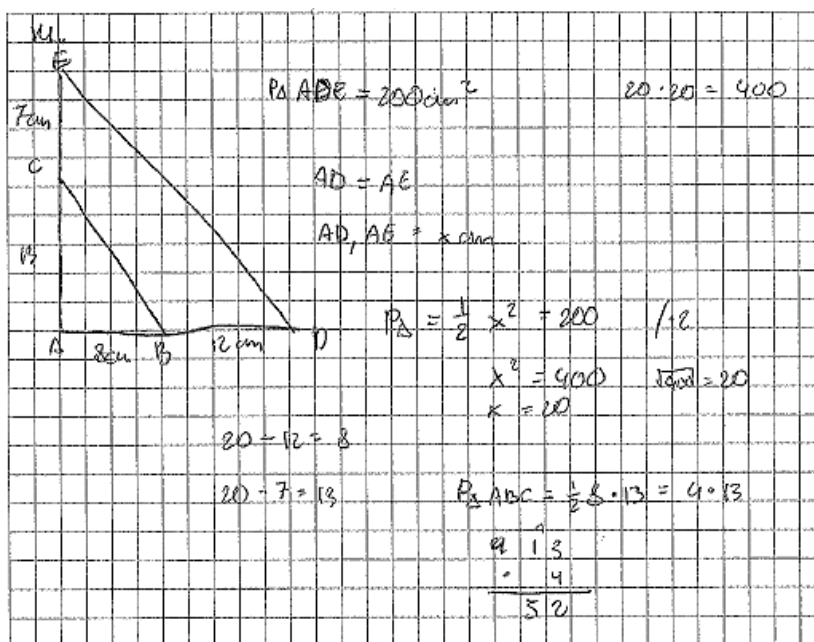 E
7cm
C
13
A 8cm B 12 cm D
P△ ADE = 200cm²
20 · 20 = 400
AD = AE
AD, AE = x cm
P△ = 1/2 x² = 200 / · 2
x² = 400 √400 = 20
x = 20
20 - 12 = 8
20 - 7 = 13
P△ ABC = 1/2 8 · 13 = 4 · 13
1 3
· 4
5 2